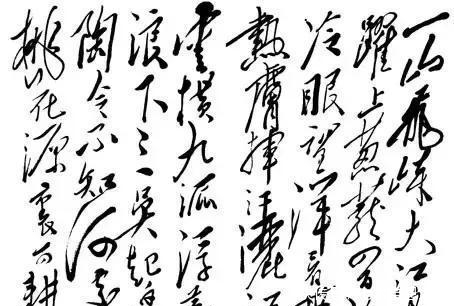 一山飛峙大江
躍上葱蘢四百
冷眼望洋看
熱膚揮汗灑江
雲橫九派浮
浪下三吳起
陶令不知何處
桃花源裏可耕